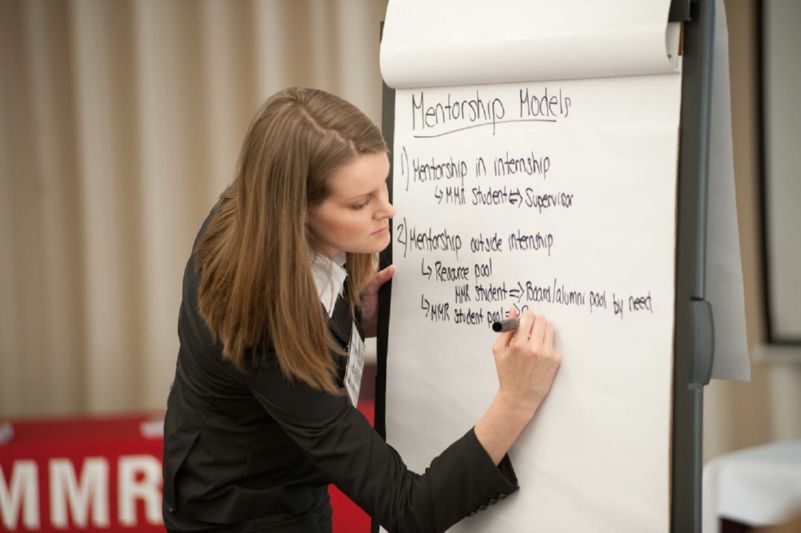 Mentorship Models
1) Mentorship in internship
↳ MMR Student ⇔ Supervisor
2) Mentorship outside internship
↳ Resource pool
MMR Student ⇔ Board/alumni pool by need
↳ MMR Student pool ⇔
MMR